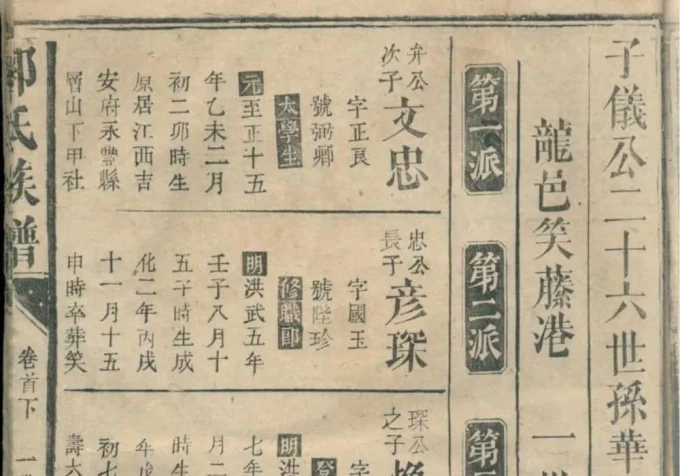 子儀公二十六世孫華
龍邑笑藤港 一
第一派
弁公
次子
文忠
字正良
號弼卿
太學生
元至正十五
年乙未二月
初二卯時生
原居江西吉
安府永豐縣
層山下甲社
第二派
忠公
長子
彥琛
字國玉
號陛珍
修職郎
明洪武五年
壬子八月十
五午時生成
化二年丙戌
十一月十五
申時卒葬笑
第
琛公
之子
字
登
明洪
七年
月二
時生
年
初七
壽六
氏族譜
卷首下